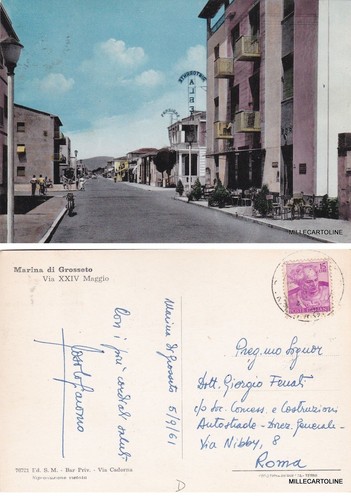 RISTORANTE
ALBE
MILLECARTOLINE
Marina di Grosseto
Via XXIV Maggio
Marina di Grosseto 5/9/61
Con i più cordiali saluti
Preg.mo Signor
Dott. Giorgio
c/o Dir. Comess. e Costruzioni
Autostrade - Direz. Generale -
Via Nibby, 8
Roma
70721 Ed. S. M. - Bar Priv. - Via Cadorna
Riproduzione vietata
D
MILLECARTOLINE